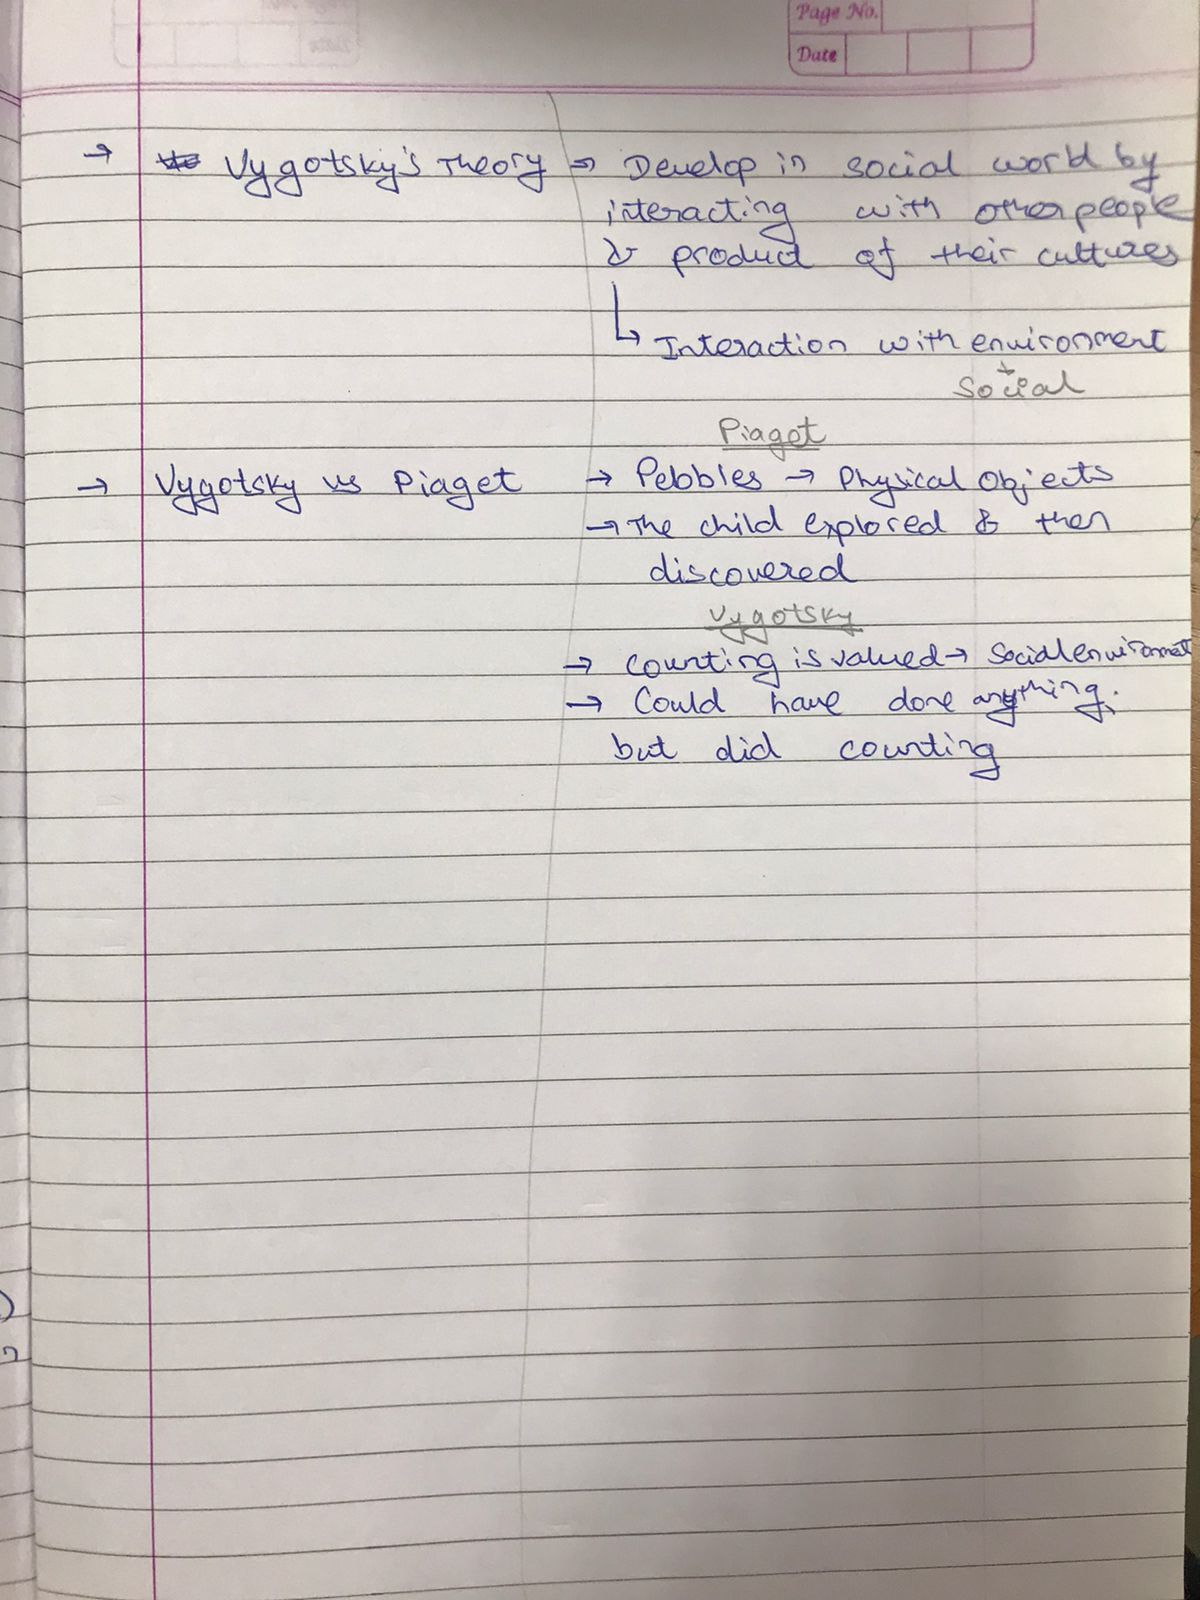 Page No.
Date
→ Vygotsky's Theory → Develop in social world by
interacting with other people
& product of their cultures
↳ Interaction with environment
↓
Social
Piaget
→ Vygotsky vs Piaget → Pebbles → Physical Objects
→ The child explored & then
discovered
Vygotsky
→ Counting is valued → Social environment
→ Could have done anything,
but did counting